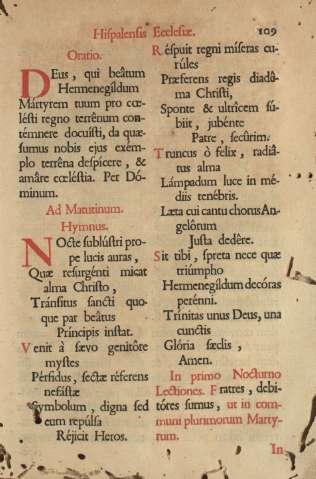 Hispalensis Ecclesiæ. 109
Oratio.
DEus, qui beâtum
Hermenegíldum
Mártyrem tuum pro cœ-
lésti regno terrênum con-
témnere docuísti, da quæ-
sumus nobis ejus exém-
plo terrêna despícere, &
amâre cœléstia. Per Dó-
minum.
Ad Matutinum.
Hymnus.
NOcte sublústri pro-
pe lucis auras,
Quæ resurgénti micat
alma Christo,
Tránsitus sancti quo-
que par beâtus
Príncipis instat.
Venit à sævo genitôre
mystes
Pérfidus, sectæ réferens
nefástæ
Symbolum, digna sed
eum repúlsa
Réjicit Heros.
Réspuit regni míseras cu-
rúles
Præferens regis diadâ-
ma Christi,
Sponte & ultrîcem sú-
biit, jubénte
Patre, secûrim.
Truncus ò felix, radiâ-
tus alma
Lámpadum luce in mé-
diis tenébris.
Læta cui cantu chorus An-
gelôrum
Justa dedêre.
Sit tibi, spreta nece quæ
triúmpho
Hermenegíldum decóras
perénni.
Trínitas unus Deus, una
cunctis
Glória sæclis,
Amen.
In primo Nocturno
Lectiones. Fratres, debi-
tóres sumus, ut in com-
muni plurimorum Marty-
rum.
In